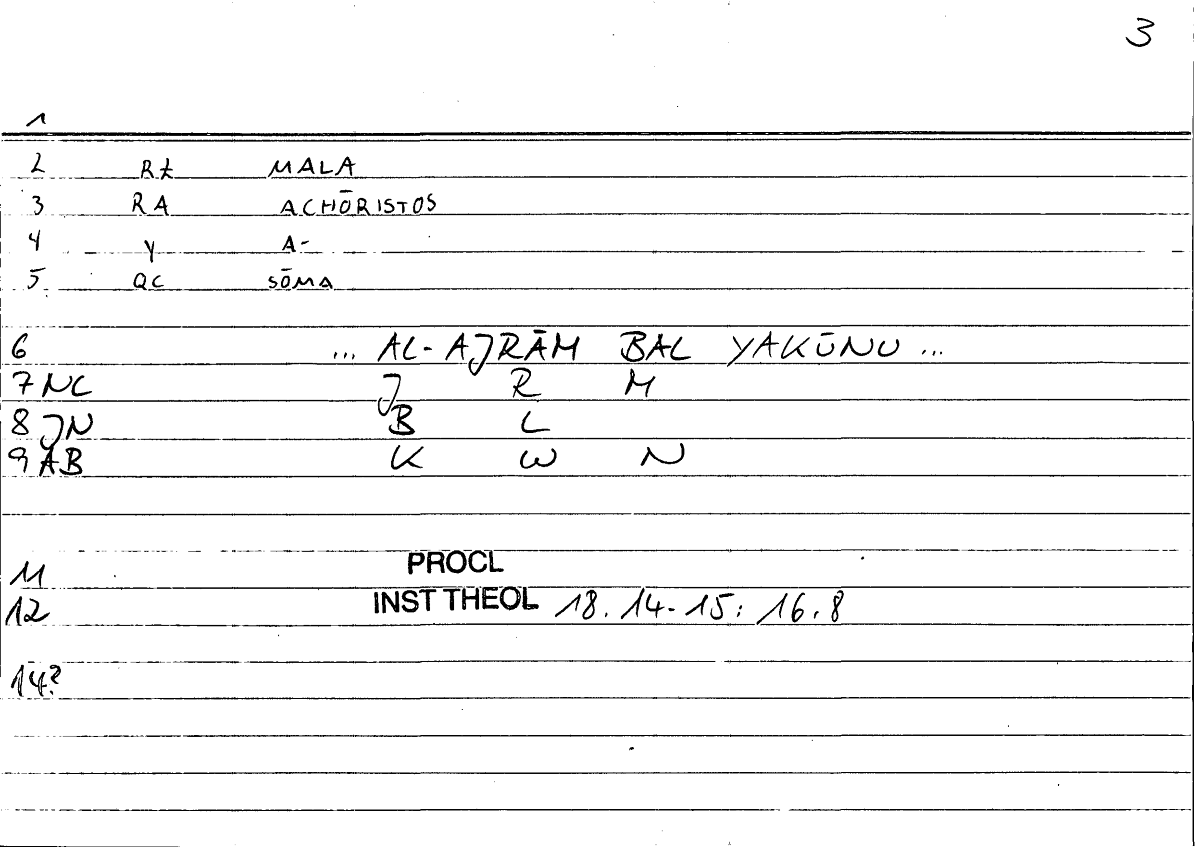 3
1
2 RŁ MALA
3 RA ACHŌRISTOS
4 Y A-
5 QC SŌMA
6 ... AL-AJRĀM BAL YAKŪNU ...
7 NC J R M
8 JN B L
9 AB K W N
11 PROCL
12 INST THEOL 18.14-15: 16.8
14?